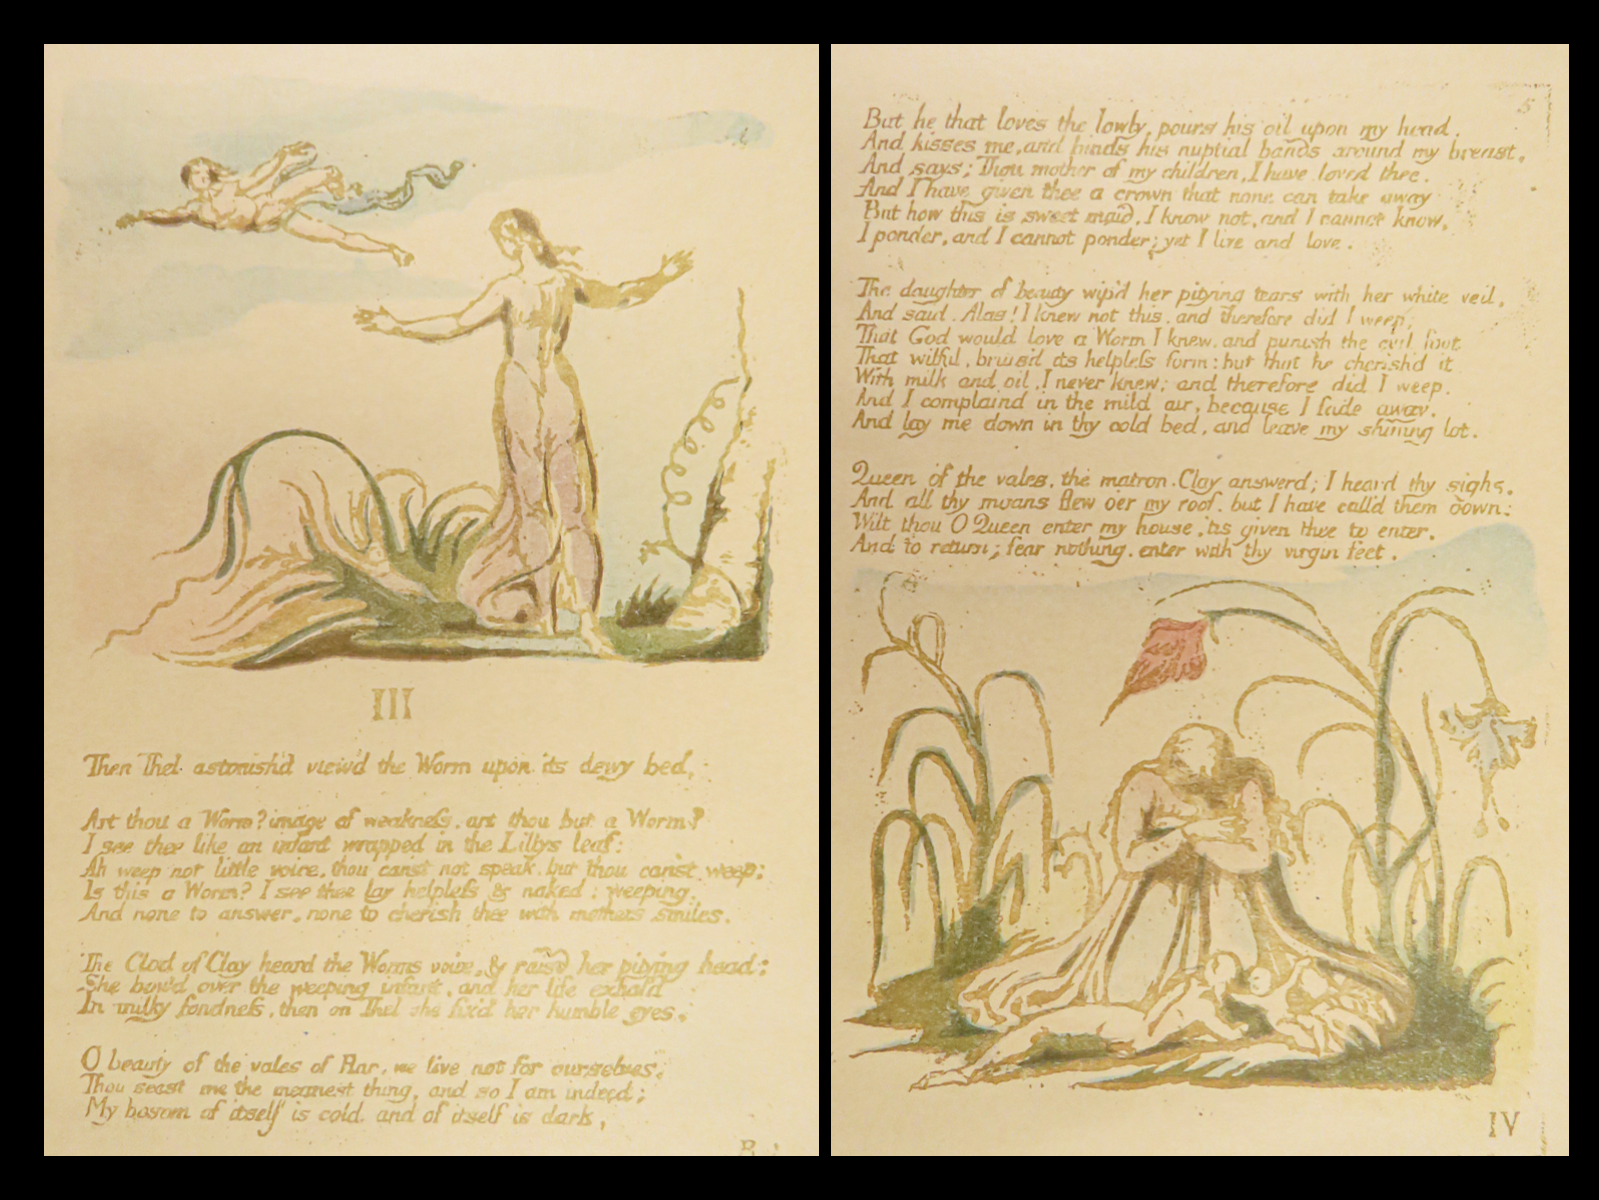 III
Then Thel astonish'd view'd the Worm upon its dewy bed,
Art thou a Worm? image of weakness, art thou but a Worm?
I see thee like an infant wrapped in the Lillys leaf:
Ah weep not little voice, thou canst not speak, but thou canst weep;
Is this a Worm? I see thee lay helpless & naked: weeping,
And none to answer, none to cherish thee with mothers smiles.
The Clod of Clay heard the Worms voice, & raisd her pitying head;
She bow'd over the weeping infant, and her life exhal'd
In milky fondness, then on Thel she fix'd her humble eyes.
O beauty of the vales of Har, we live not for ourselves,
Thou seest me the meanest thing, and so I am indeed;
My bosom of itself is cold, and of itself is dark,
B
5
But he that loves the lowly, pours his oil upon my head.
And kisses me, and binds his nuptial bands around my breast,
And says; Thou mother of my children, I have loved thee.
And I have given thee a crown that none can take away
But how this is sweet maid, I know not, and I cannot know,
I ponder, and I cannot ponder; yet I live and love.
The daughter of beauty wip'd her pitying tears with her white veil,
And said, Alas! I knew not this, and therefore did I weep;
That God would love a Worm I knew, and punish the evil foot
That wilful, bruis'd its helpless form: but that he cherish'd it
With milk and oil, I never knew; and therefore did I weep.
And I complaind in the mild air, because I fade away.
And lay me down in thy cold bed, and leave my shining lot.
Queen of the vales, the matron Clay answerd; I heard thy sighs.
And all thy moans flew o'er my roof, but I have call'd them down:
Wilt thou O Queen enter my house, 'tis given thee to enter.
And to return; fear nothing, enter with thy virgin feet.
IV